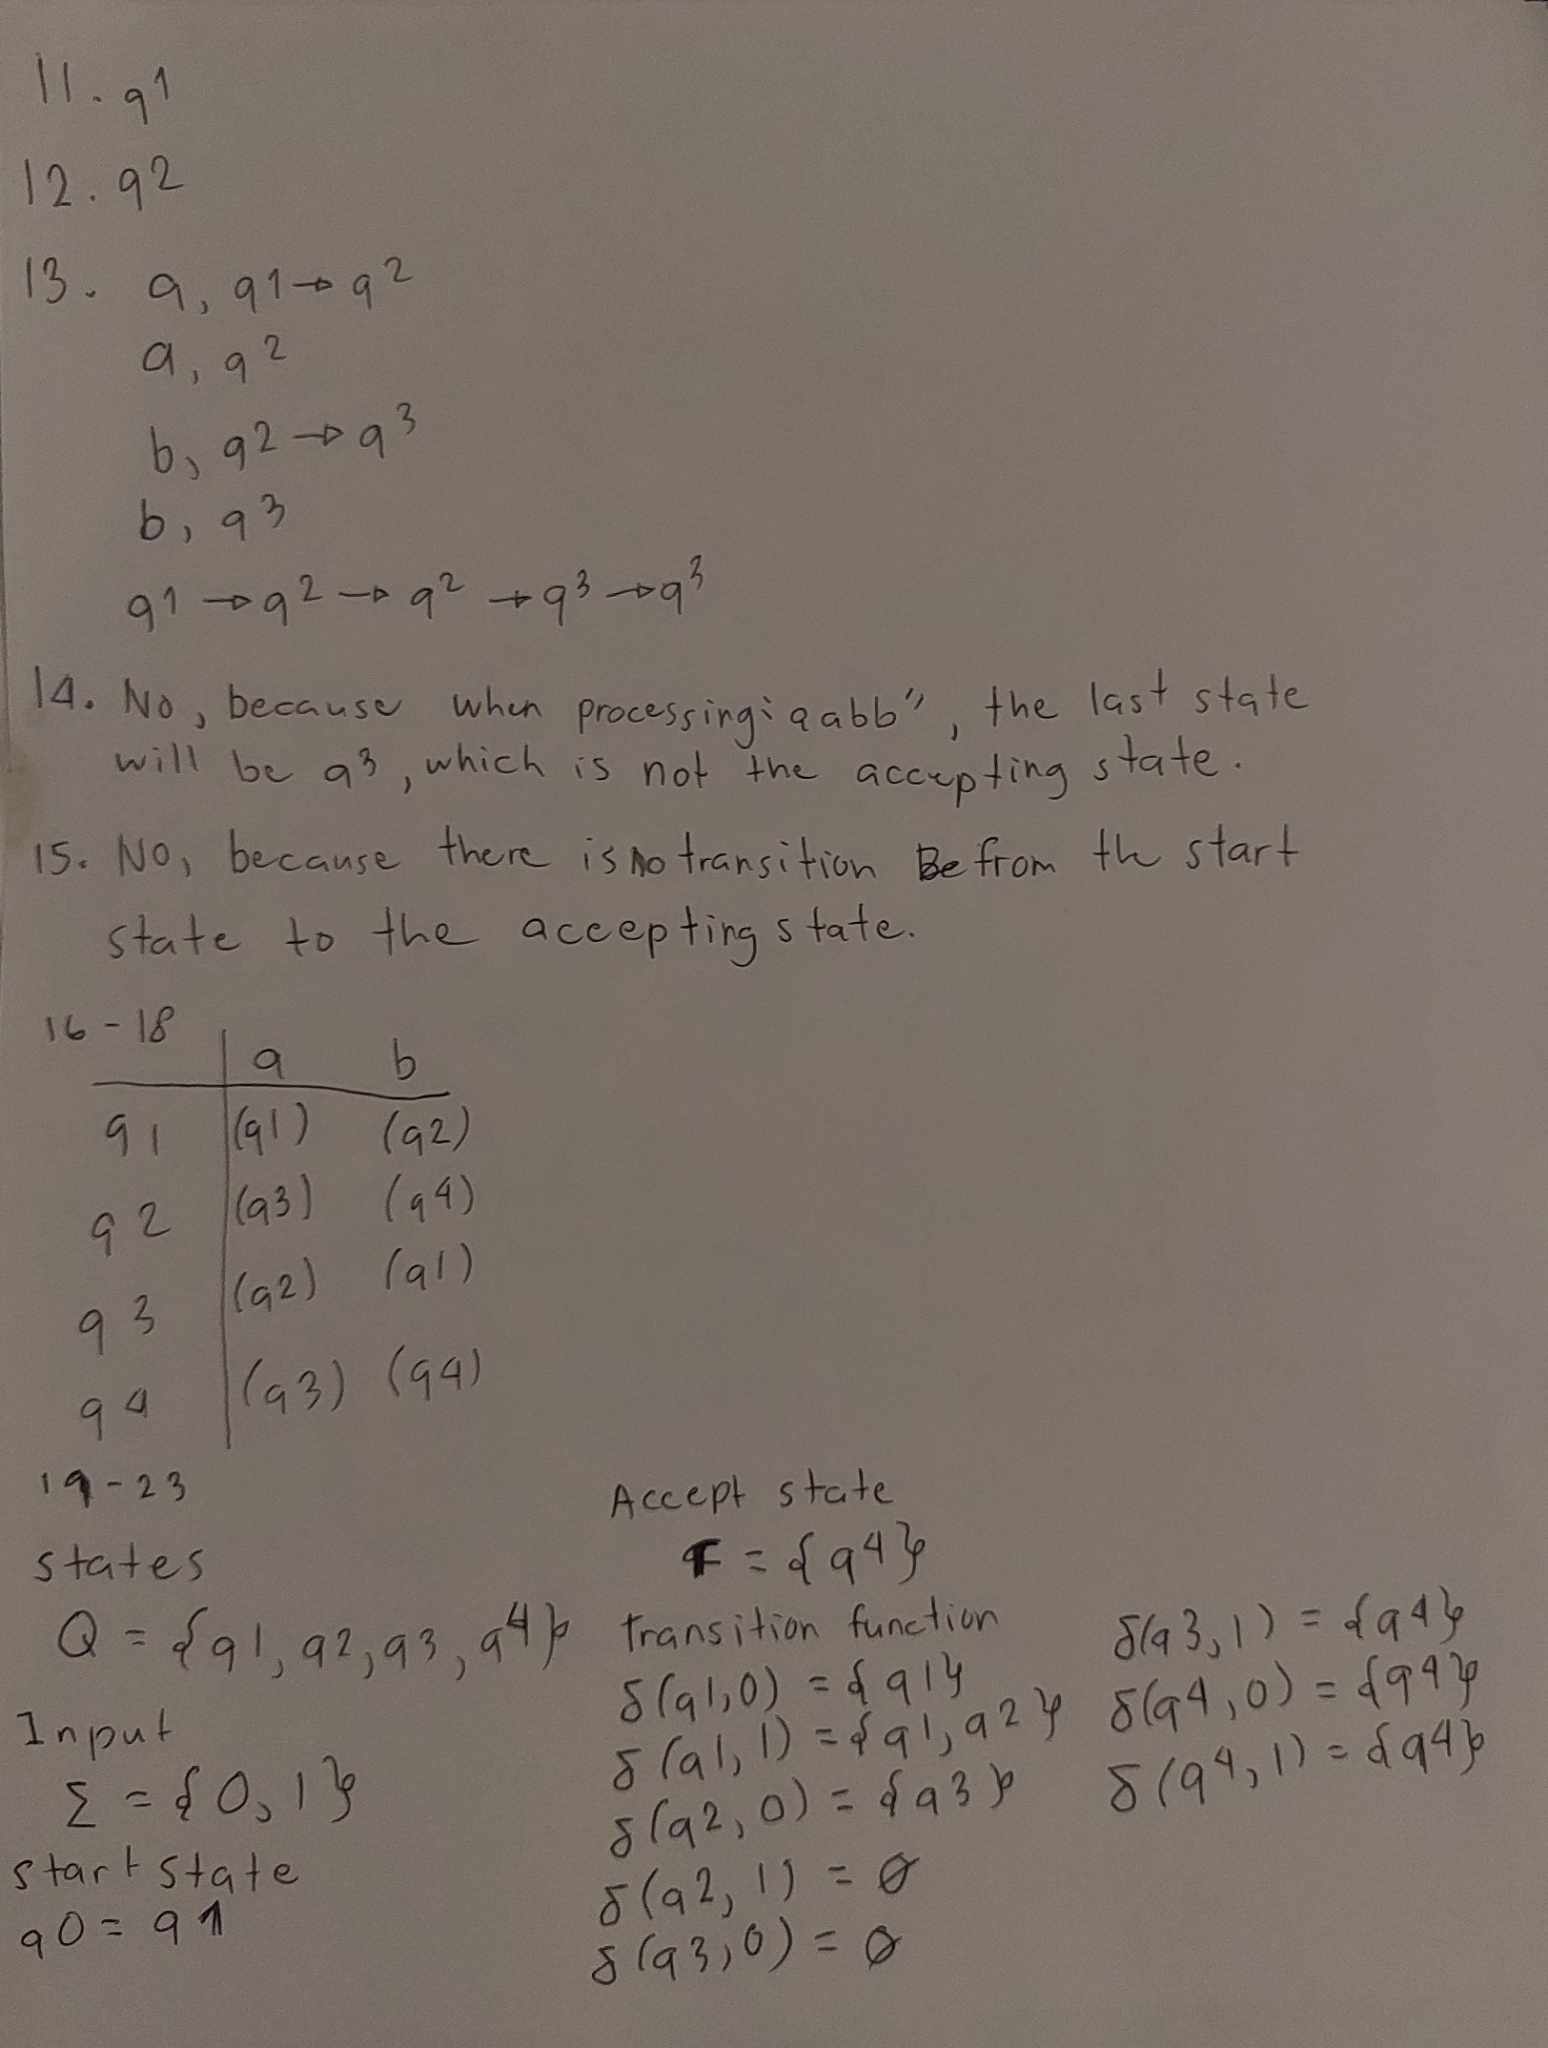 11. q1
12. q2
13. a, q1→q2
a, q2
b, q2→q3
b, q3
q1→q2→q2→q3→q3
14. No, because when processing "aabb", the last state
will be q3, which is not the accepting state.
15. NO, because there is no transition Be from the start
state to the accepting state.
16-18
a b
q1 (q1) (q2)
q2 (q3) (q4)
q3 (q2) (q1)
q4 (q3) (q4)
19-23
states
Q = {q1, q2, q3, q4}
Input
Σ = {0, 1}
start state
q0 = q1
Accept state
F = {q4}
transition function
δ(q1,0) = {q1}
δ(q1,1) = {q1, q2}
δ(q2,0) = {q3}
δ(q2,1) = ∅
δ(q3,0) = ∅
δ(q3,1) = {q4}
δ(q4,0) = {q4}
δ(q4,1) = {q4}